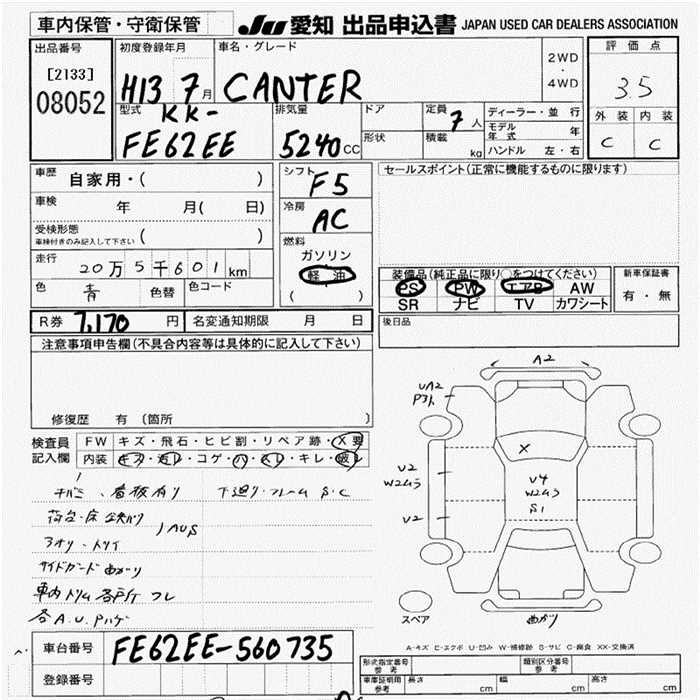 車内保管・守衛保管
JU 愛知 出品申込書 JAPAN USED CAR DEALERS ASSOCIATION
出品番号
[2133]
08052
初度登録年月
H13 7月
車名・グレード
CANTER
2WD
・
4WD
評価点
3.5
外装 内装
C C
型式
KK-
FE62EE
排気量
5240cc
ドア
形状
定員
7人
積載
kg
ディーラー・並行
モデル年式 年
ハンドル 左・右
車歴 自家用・( )
車検 年 月( 日)
受検形態
車検付きのみ記入して下さい ( )
走行 20万5千601km
色 青 色替 色コード
シフト
F5
冷房
AC
燃料
ガソリン
軽油
( )
セールスポイント(正常に機能するものに限ります)
装備品(純正品に限り○をつけてください)
PS PW エアB AW
SR ナビ TV カワシート
新車保証書
有・無
R券 7,170円 名変通知期限 月 日
後日品
注意事項申告欄(不具合内容等は具体的に記入して下さい)
修復歴 有 〔箇所 〕
検査員
記入欄
FW キズ・飛石・ヒビ割・リペア跡・X要
内装 キズ・汚レ・コゲ・穴・スレ・キレ・破レ
看板有り 下廻り・フレーム S・C
荷台・床 鉄板ハリ
アオリ・トリイ
AUS
サイドガード 曲がり
車内 トリム 各所 スレ
各A.U.Pハゲ
A2
UA2
U2
W2ムラ
U2
X
U4
W2ムラ
S1
曲がり
スペア
A-キズ E-エクボ U-凹み W-補修跡 S-サビ C-腐食 XX-交換済
車台番号 FE62EE-560735
登録番号
形式指定番号 参考
類別区分番号 参考
車庫証明用 参考
長さ cm 幅 cm 高さ cm